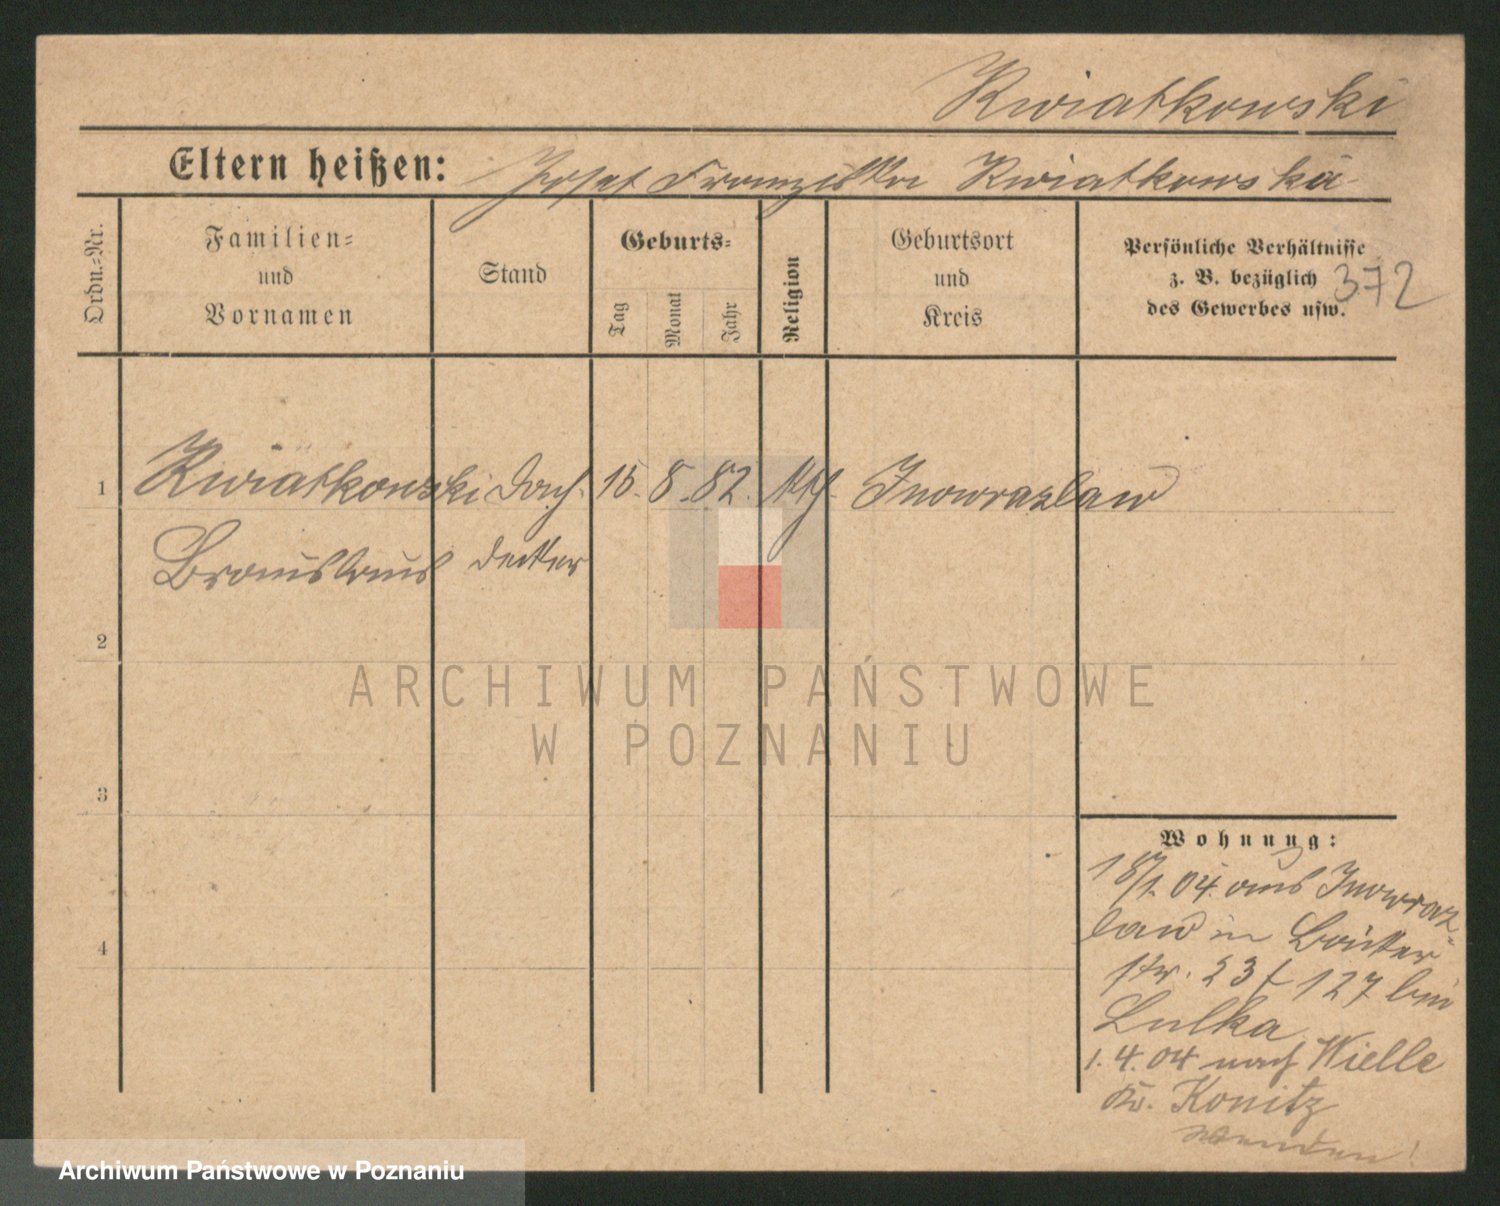 Kwiatkowski
Eltern heißen: Josef Franziska Kwiatkowska
Ordn.-Nr.
Familien-
und
Vornamen
Stand
Geburts-
Tag
Monat
Jahr
Religion
Geburtsort
und
Kreis
Persönliche Verhältnisse
z. B. bezüglich
des Gewerbes usw.
372
1 Kwiatkowski Dach- 15. 8. 82. kth. Inowrazlaw
Bronislaus decker
2
3
4
Wohnung:
18/1. 04. aus Inowraz-
law in
str. 23 f 127 bei
Lulka
1. 4. 04 nach Wielle
Kr. Konitz
wenden!
ARCHIWUM PAŃSTWOWE
W POZNANIU
Archiwum Państwowe w Poznaniu